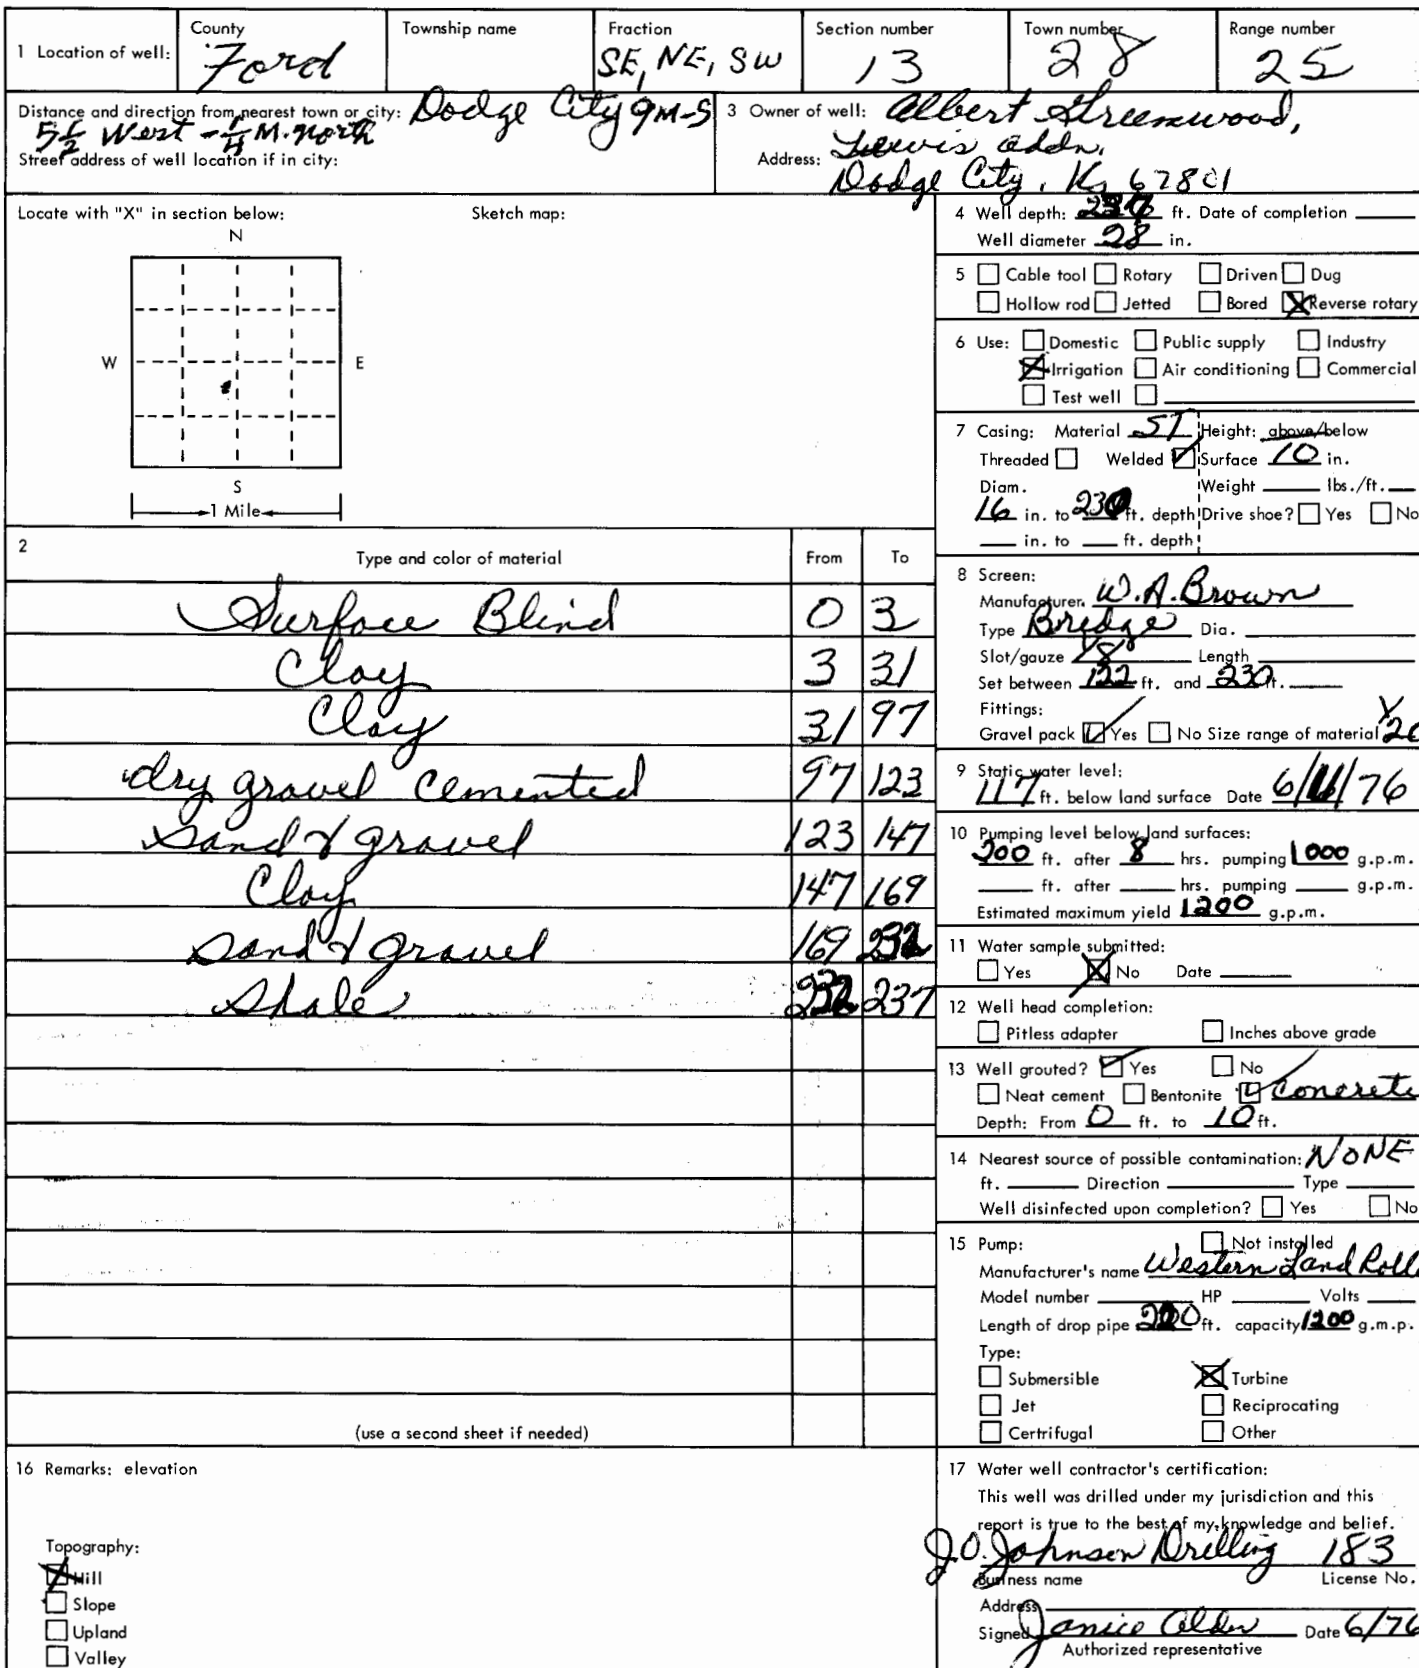 1 Location of well:
County
Ford
Township name
Fraction
SE, NE, SW
Section number
13
Town number
28
Range number
25
Distance and direction from nearest town or city: Dodge City 9M-S
5½ West - ¼ M. North
Street address of well location if in city:
3 Owner of well: Albert Greenwood,
Address: Lewis Addn.
Dodge City, Ks 67801
Locate with "X" in section below:
Sketch map:
N
W E
S
1 Mile
2 Type and color of material From To
Surface Blind 0 3
Clay 3 31
Clay 31 97
dry gravel cemented 97 123
Sand & gravel 123 147
Clay 147 169
Sand & gravel 169 232
Shale 232 237
(use a second sheet if needed)
4 Well depth: ft. Date of completion
Well diameter 28 in.
5 Cable tool Rotary Driven Dug
Hollow rod Jetted Bored Reverse rotary
6 Use: Domestic Public supply Industry
Irrigation Air conditioning Commercial
Test well
7 Casing: Material ST Height: above/below
Threaded Welded Surface 10 in.
Diam. Weight lbs./ft.
16 in. to 230 ft. depth Drive shoe? Yes No
in. to ft. depth
8 Screen:
Manufacturer. W.A. Brown
Type Bridge Dia.
Slot/gauge Length
Set between 122 ft. and 230 ft.
Fittings:
Gravel pack Yes No Size range of material
9 Static water level:
117 ft. below land surface Date 6/11/76
10 Pumping level below land surfaces:
200 ft. after 8 hrs. pumping 1000 g.p.m.
ft. after hrs. pumping g.p.m.
Estimated maximum yield 1200 g.p.m.
11 Water sample submitted:
Yes No Date
12 Well head completion:
Pitless adapter Inches above grade
13 Well grouted? Yes No
Neat cement Bentonite Concrete
Depth: From 0 ft. to 10 ft.
14 Nearest source of possible contamination: NONE
ft. Direction Type
Well disinfected upon completion? Yes No
15 Pump: Not installed
Manufacturer's name Western Land Rolle
Model number HP Volts
Length of drop pipe ft. capacity 1200 g.m.p.
Type:
Submersible Turbine
Jet Reciprocating
Certrifugal Other
16 Remarks: elevation
Topography:
Hill
Slope
Upland
Valley
17 Water well contractor's certification:
This well was drilled under my jurisdiction and this
report is true to the best of my knowledge and belief.
J.O. Johnson Drilling 183
Business name License No.
Address
Signed Janice Alder Date 6/76
Authorized representative